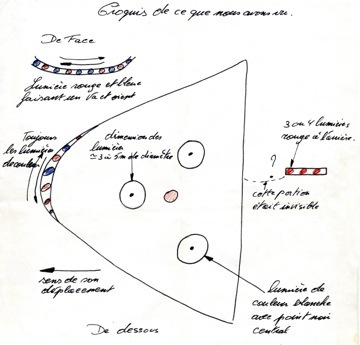 Croquis de ce que nous avons vu.
De Face
Lumière rouge et bleue
faisant un va et vient
Toujours
les lumières
de couleur
dimension des
lumière
≃ 3 à 5 m de diamètre
3 ou 4 lumières
rouge à l'arrière.
?
cette portion
était invisible
sens de son
déplacement
lumière de
couleur blanche
avec point noir
central
De dessous